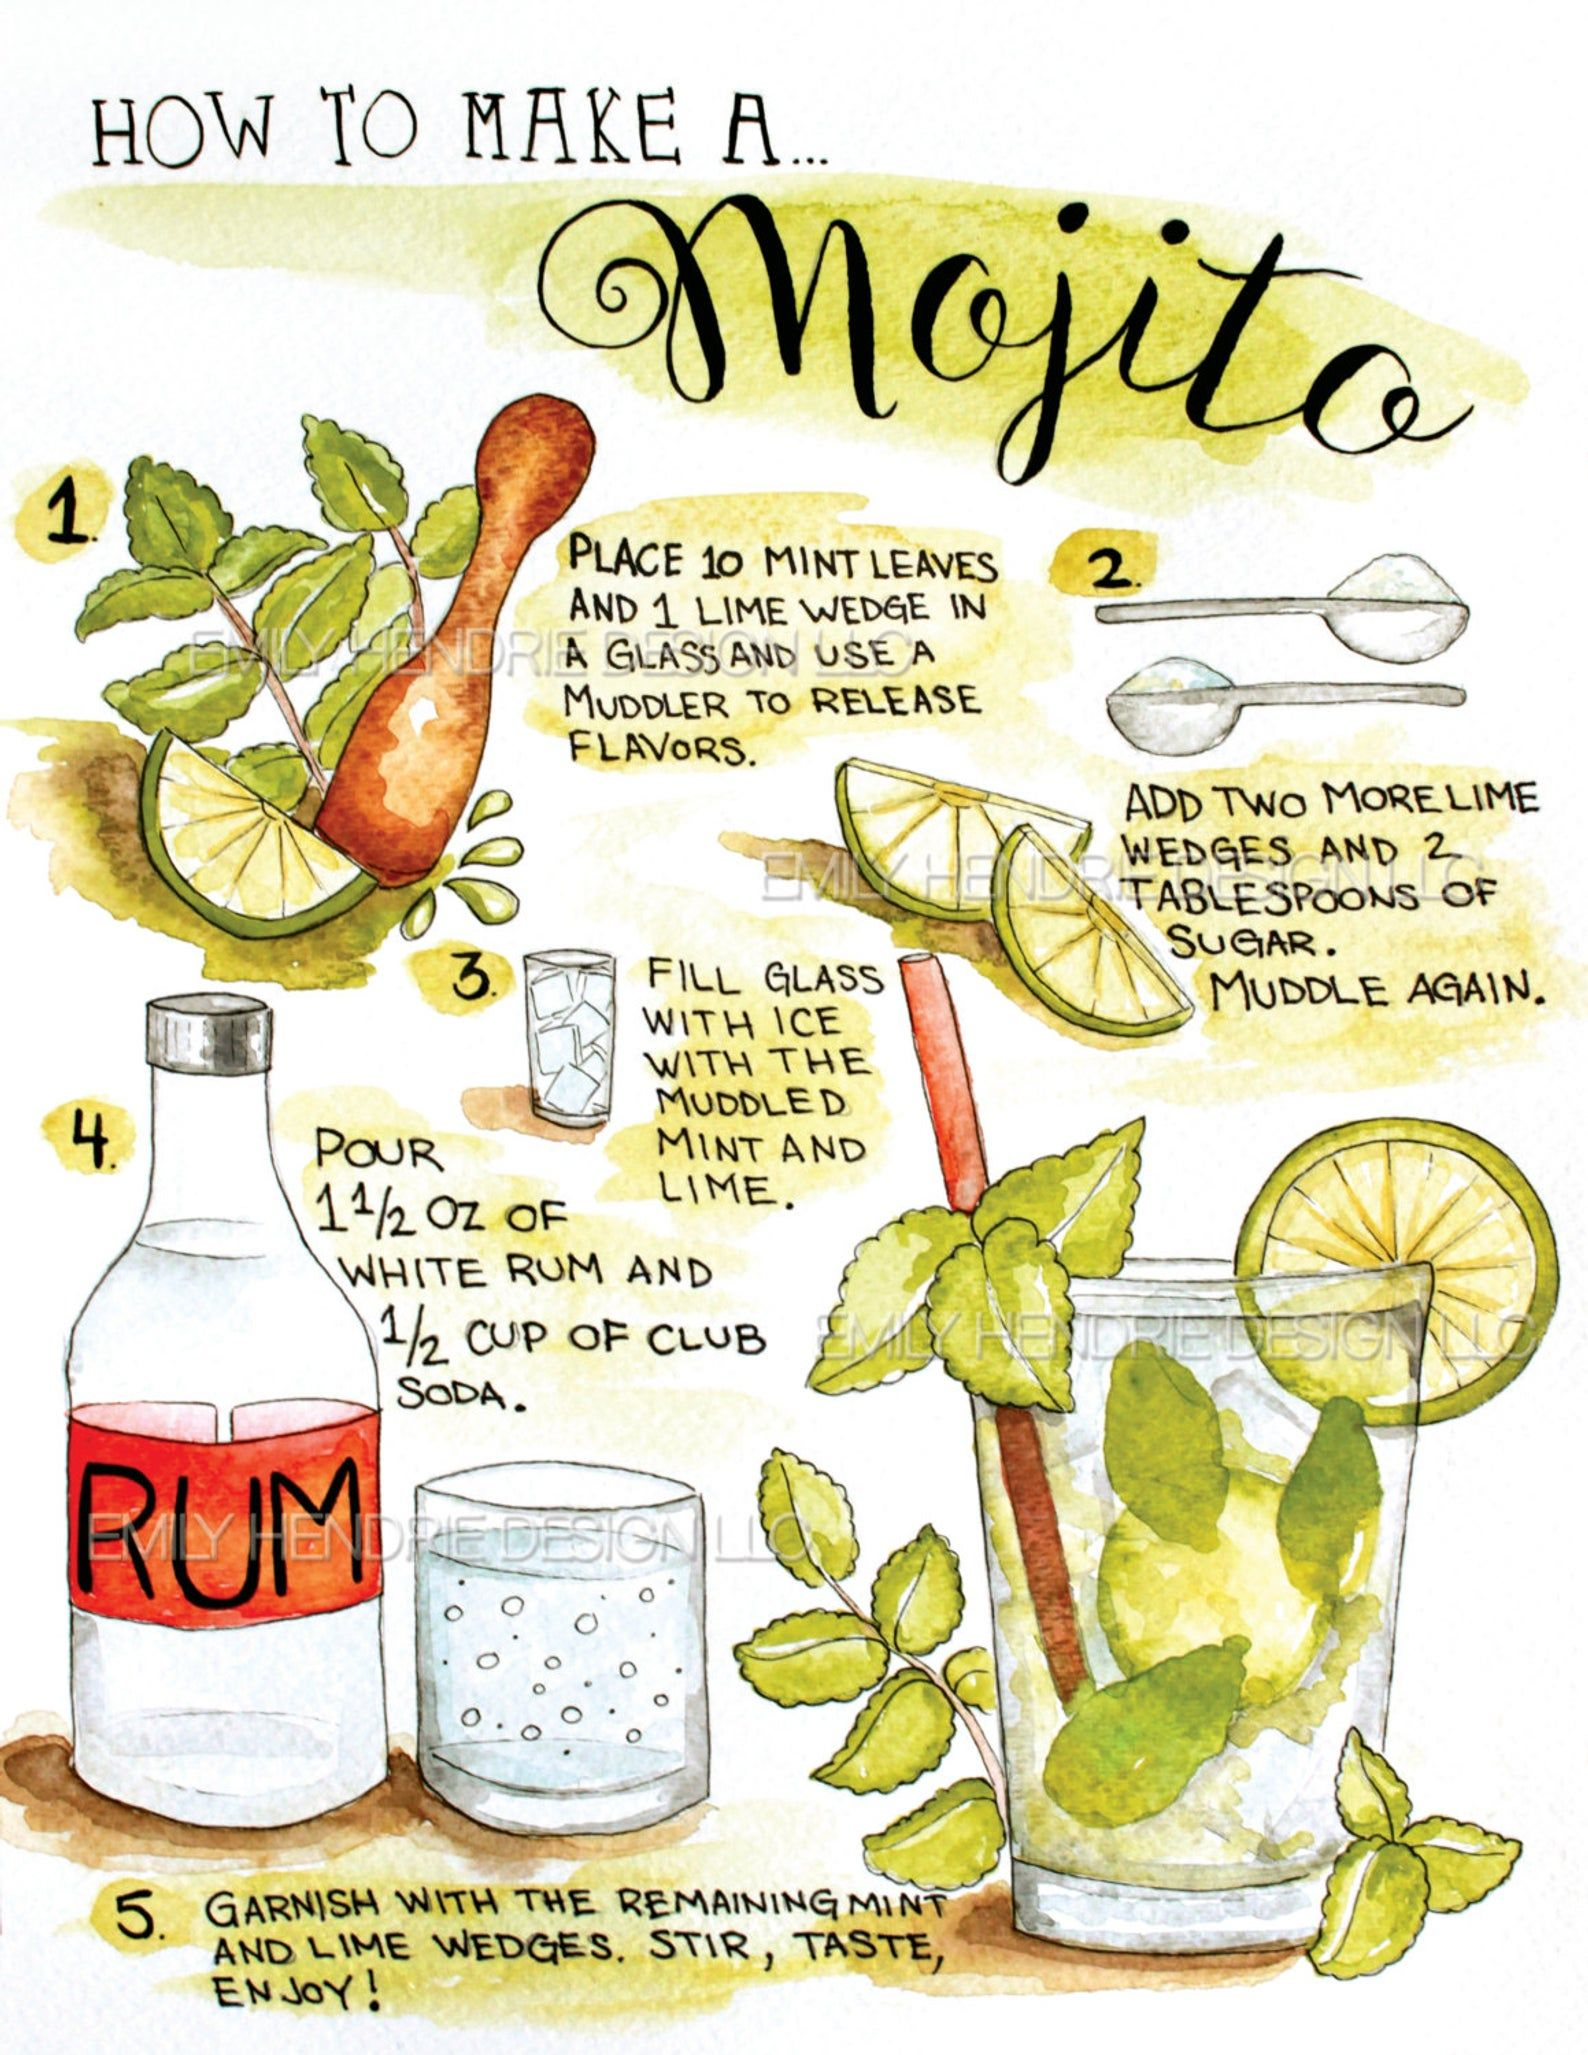 HOW TO MAKE A...
Mojito
1.
PLACE 10 MINT LEAVES
AND 1 LIME WEDGE IN
A GLASS AND USE A
MUDDLER TO RELEASE
FLAVORS.
EMILY HENDRIE DESIGN LLC
2.
ADD TWO MORE LIME
WEDGES AND 2
TABLESPOONS OF
SUGAR.
MUDDLE AGAIN.
EMILY HENDRIE DESIGN LLC
3.
FILL GLASS
WITH ICE
WITH THE
MUDDLED
MINT AND
LIME.
4.
POUR
1 1/2 OZ OF
WHITE RUM AND
1/2 CUP OF CLUB
SODA.
EMILY HENDRIE DESIGN LLC
RUM
EMILY HENDRIE DESIGN LLC
5. GARNISH WITH THE REMAINING MINT
AND LIME WEDGES. STIR, TASTE,
ENJOY!